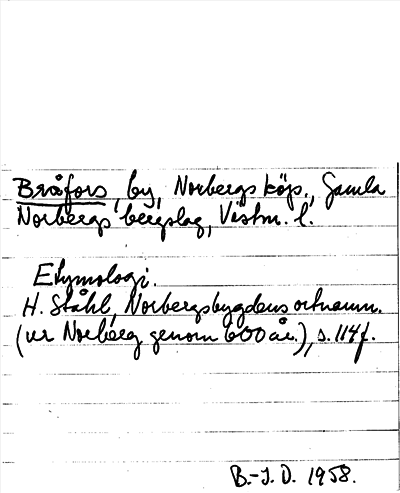 Bråfors, by, Norbergs köp., Gamla
Norbergs bergslag, Västm. l.
Etymologi.
H. Ståhl, Norbergsbygdens ortnamn.
(ur Norberg genom 600 år.), s. 114 f.
B.-J.D. 1958.